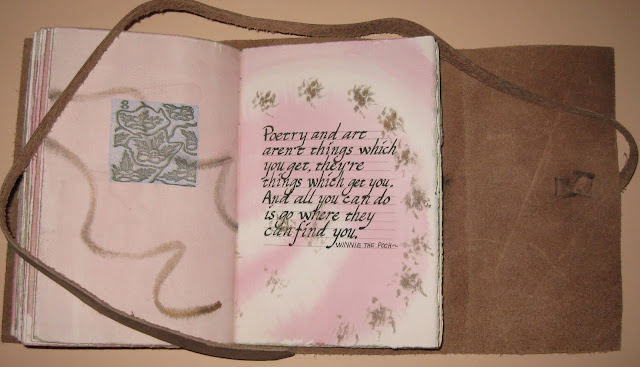 Poetry and art
aren't things which
you get, they're
things which get you.
And all you can do
is go where they
can find you.
WINNIE THE POOH~